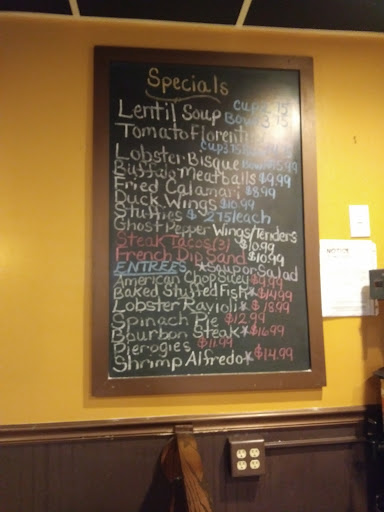 Specials
Lentil Soup Cup 2.75
Bowl 3.75
Tomato Florentine
Cup 3.75
Lobster Bisque Bowl 5.99
Buffalo Meatballs $9.99
Fried Calamari $8.99
Duck Wings $10.99
Stuffies $2.75/each
Ghost Pepper Wings/Tenders
Steak Tacos(3) $10.99
French Dip Sand $10.99
ENTREES *Soup or Salad
American Chop Suey $9.99
Baked Stuffed Fish* $14.99
Lobster Ravioli* $18.99
Spinach Pie $12.99
Bourbon Steak* $16.99
Pierogies $11.99
Shrimp Alfredo* $14.99
NOTICE